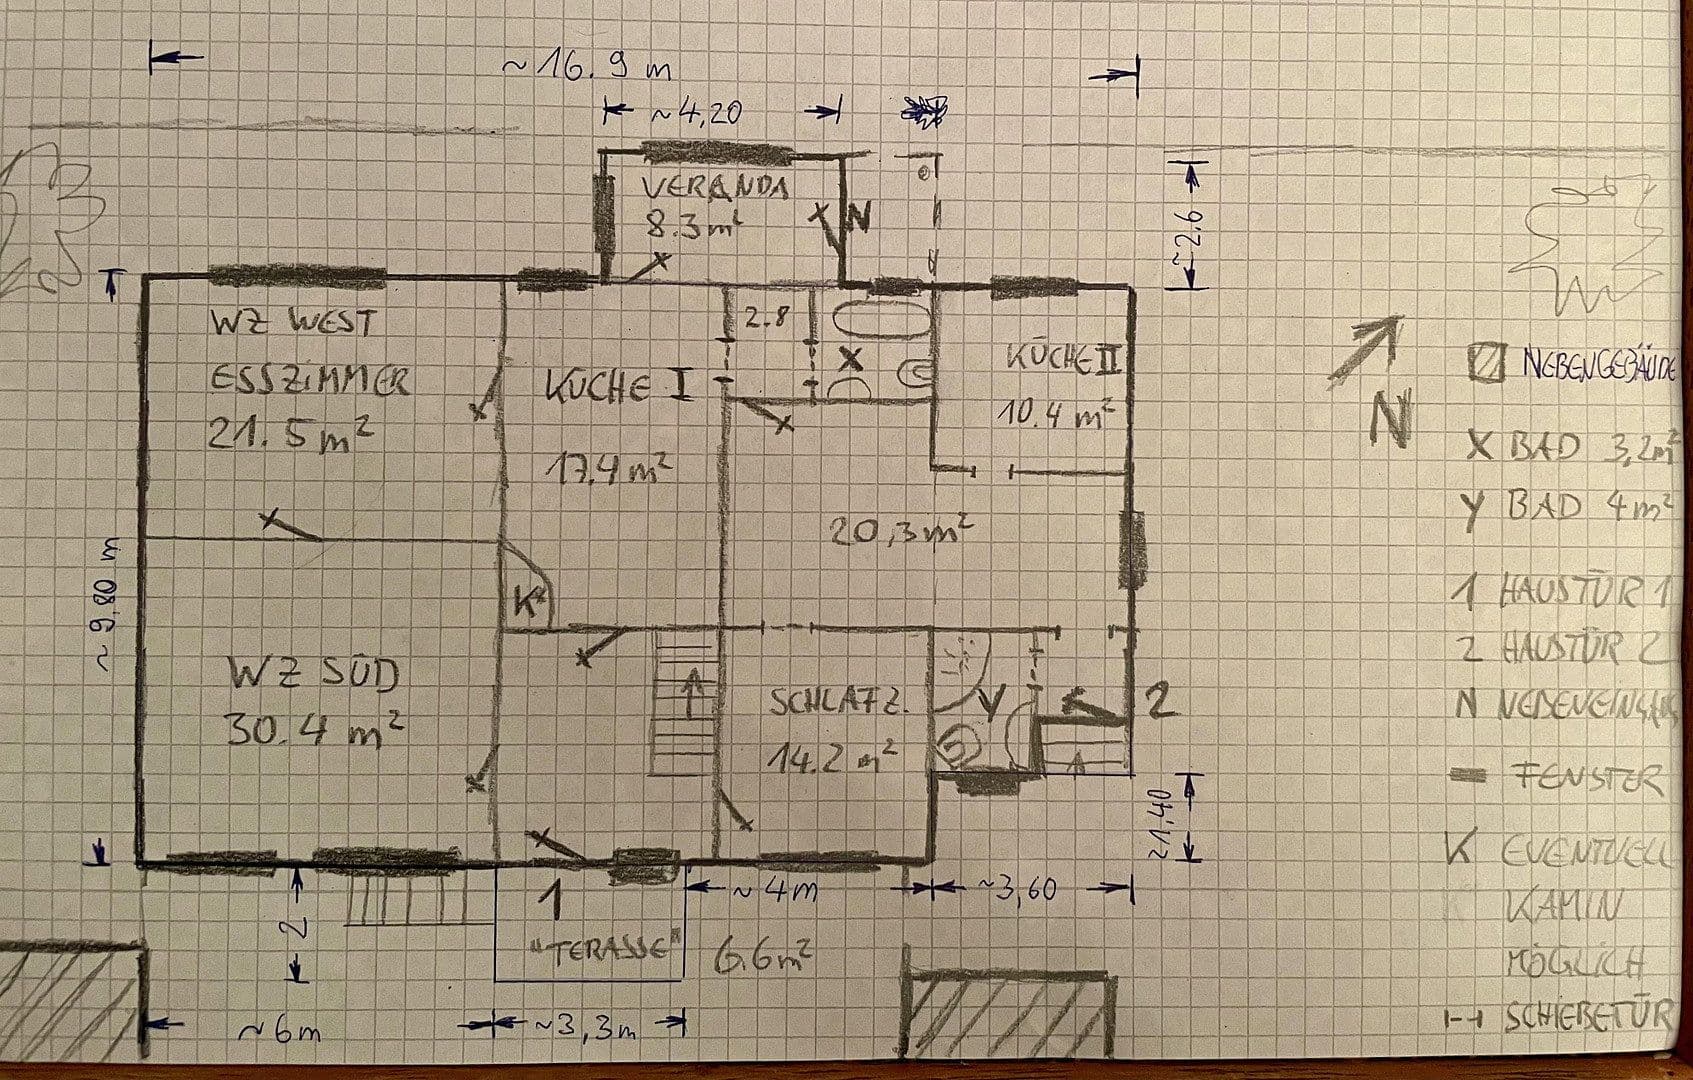 ~16.9 m
~4,20
VERANDA
8.3m²
N
~2.6
WZ WEST
ESSZIMMER
21.5m²
KÜCHE I
17.4m²
2.8
X
KÜCHE II
10.4 m²
20,3m²
~9,80 m
K
WZ SÜD
30.4 m²
SCHLAFZ.
14.2 m²
Y
2
~1,40
1
"TERASSE"
6.6m²
~4m
~3,60
2
~6m
~3,3m
N
NEBENGEBÄUDE
X BAD 3,2m²
Y BAD 4m²
1 HAUSTÜR 1
2 HAUSTÜR 2
N NEBENEINGANG
FENSTER
K EVENTUELL
KAMIN
MÖGLICH
SCHIEBETÜR